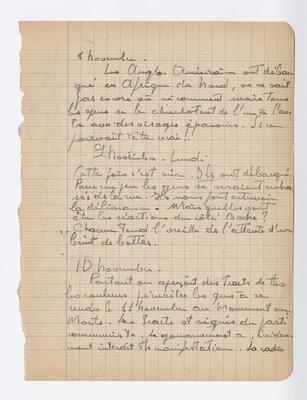 8 Novembre -
Les Anglo-Américains ont débar-
qué en Afrique du Nord, on ne sait
pas encore où ni comment mais tous
les gens se le chuchotent de l'un à l'au-
tre avec des visages épanouis. Si ce
pouvait être vrai !
9 Novembre - Lundi -
Cette fois c'est sûr. Ils ont débarqué.
Pour un peu les gens se seraient embras-
sés de la rue. Ils nous font entrevoir
la délivrance - Mais quelles vont
être les réactions du côté Boche ?
Chacun tend l'oreille de l'attente d'un
bruit de bottes.
10 Novembre.
Partout on aperçoit des tracts de
les couleurs invitant les gens à se
rendre le 11 Novembre au Monument aux
Morts. Les tracts signés du parti
communiste. Le gouvernement a évidem-
ment interdit manifestation. La radio